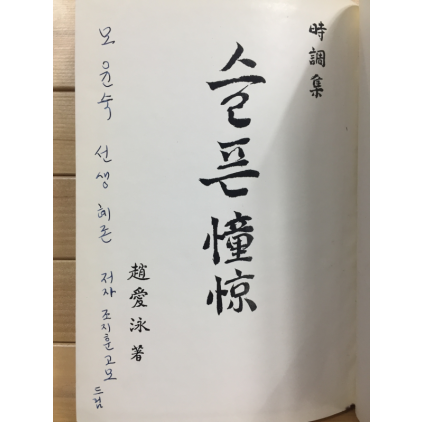 時調集
슬픈 憧憬
趙愛泳 著
모 윤숙 선생 혜존
저자 조지훈 고모
드림